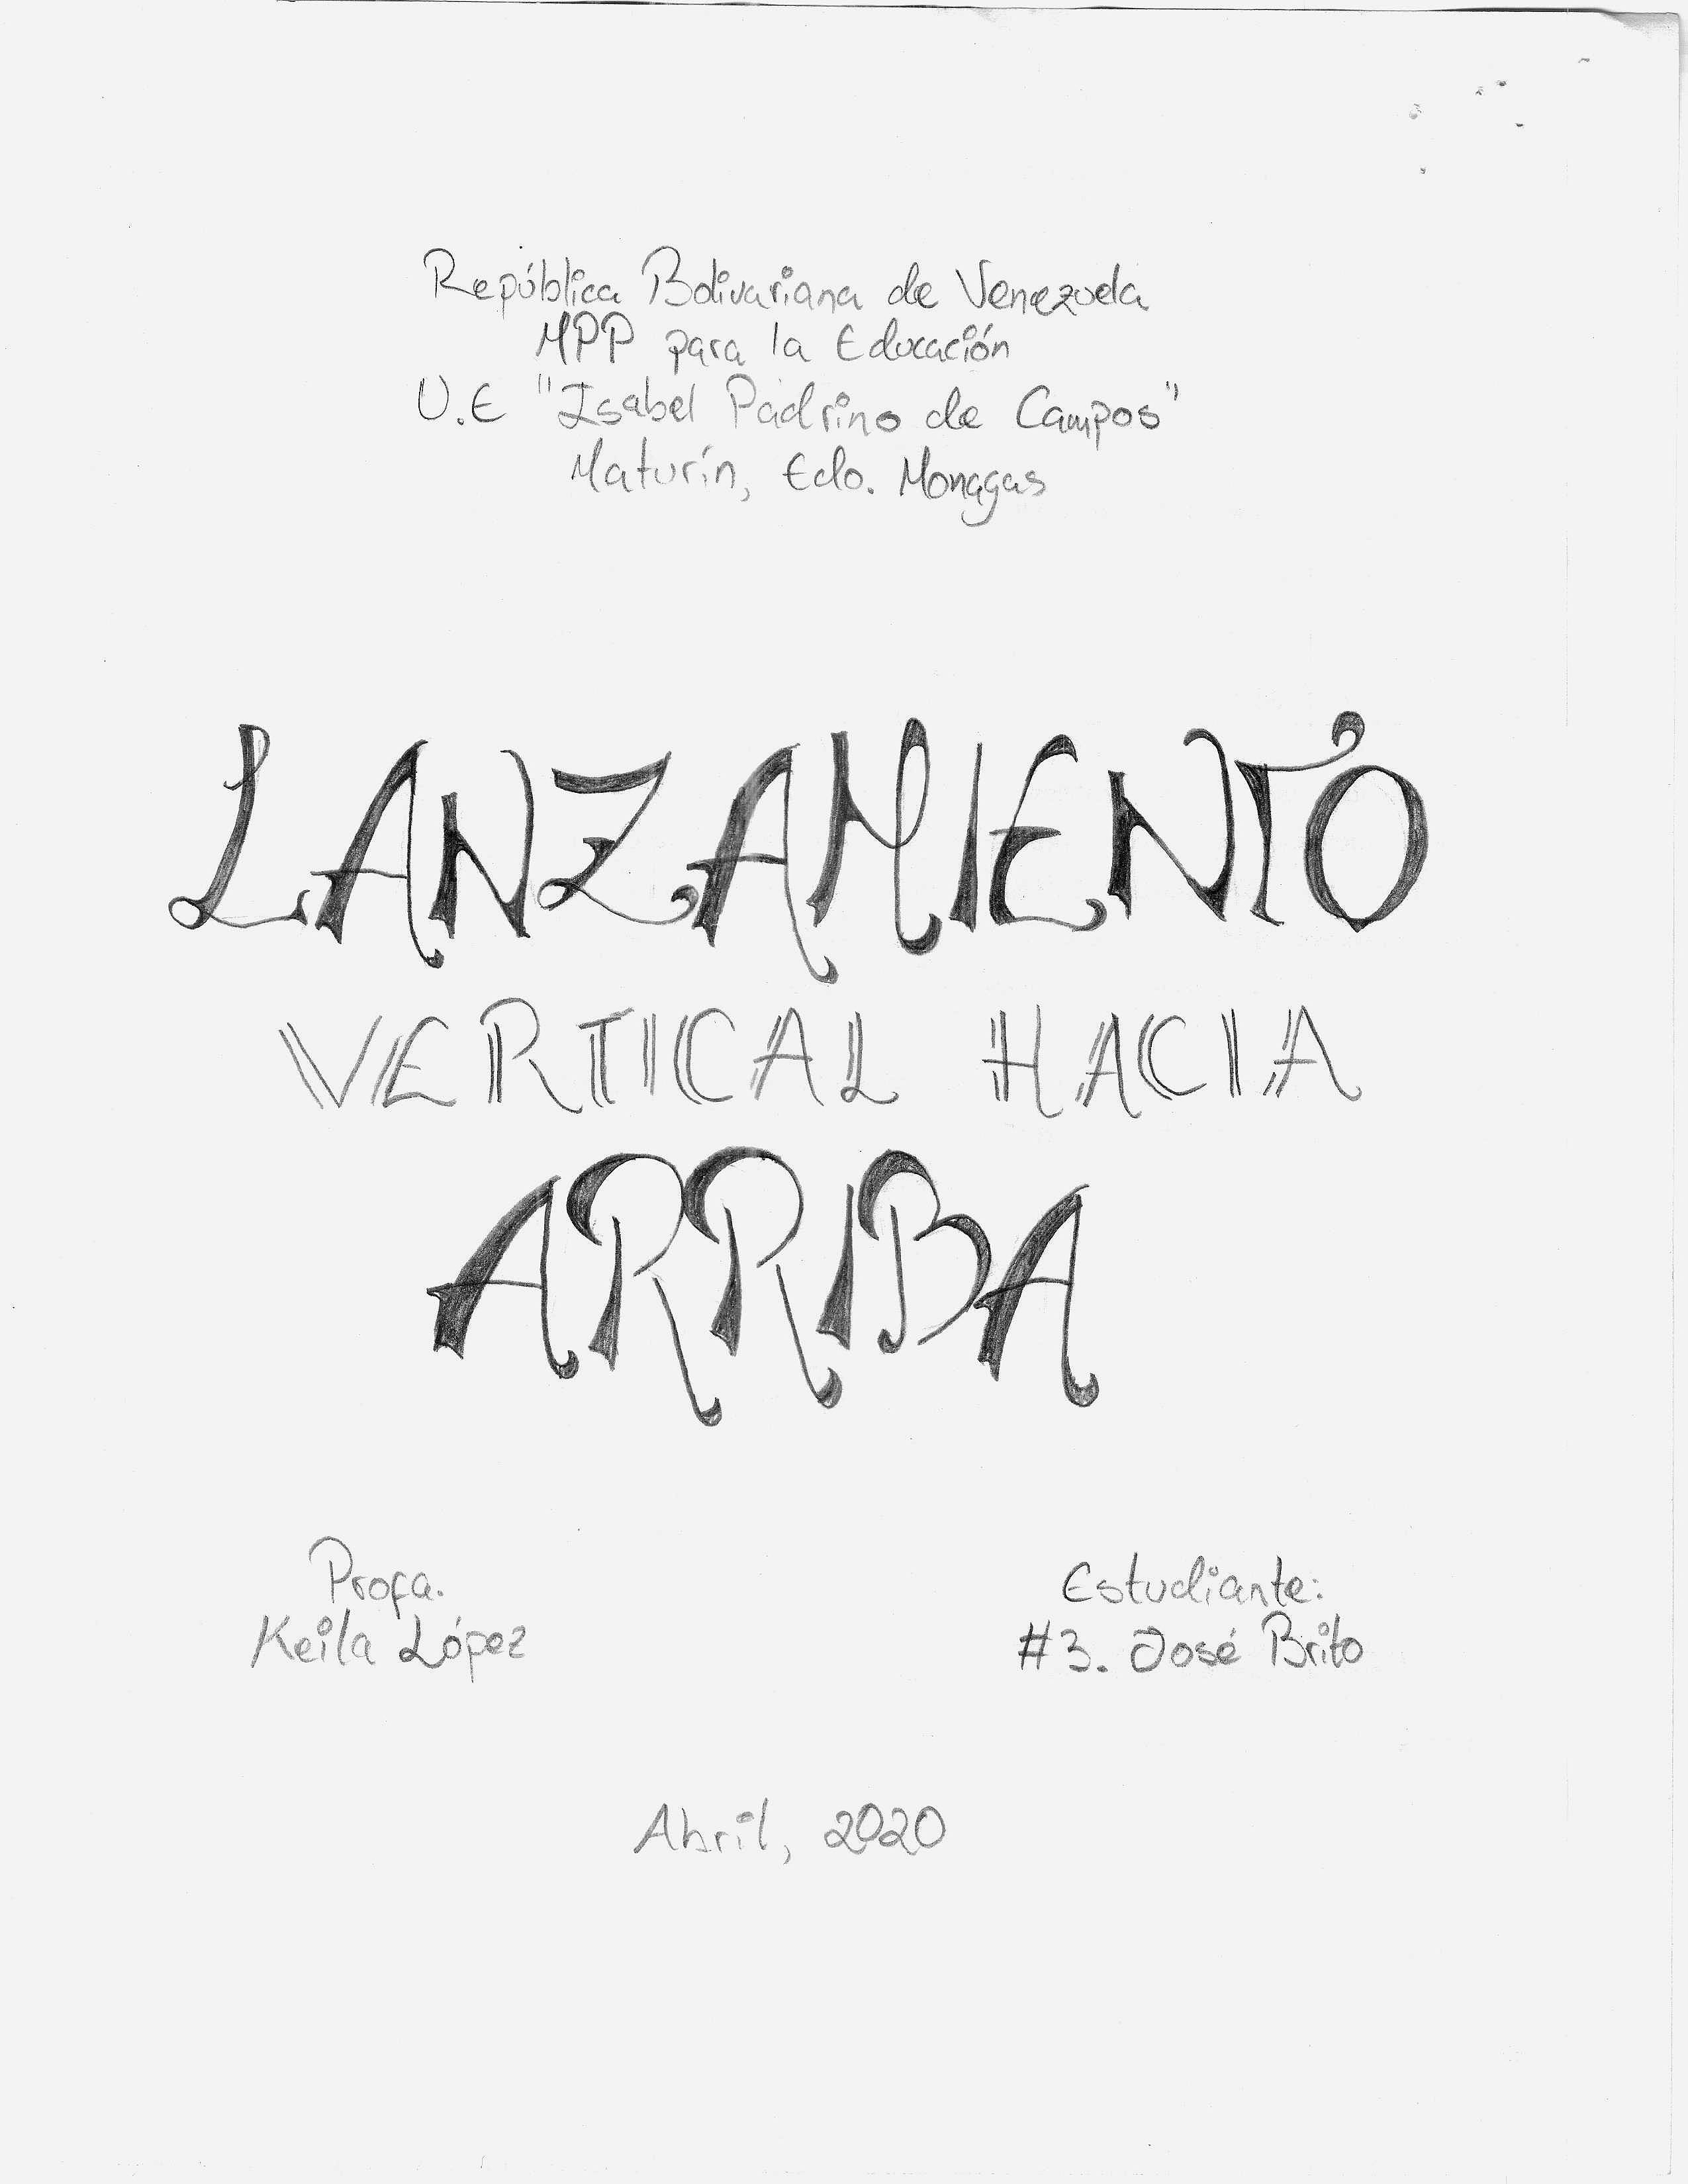 República Bolivariana de Venezuela
MPP para la Educación
U.E "Isabel Padrino de Campos"
Maturín, Edo. Monagas
LANZAMIENTO
VERTICAL HACIA
ARRIBA
Profa.
Keila López
Estudiante:
#3. José Brito
Abril, 2020